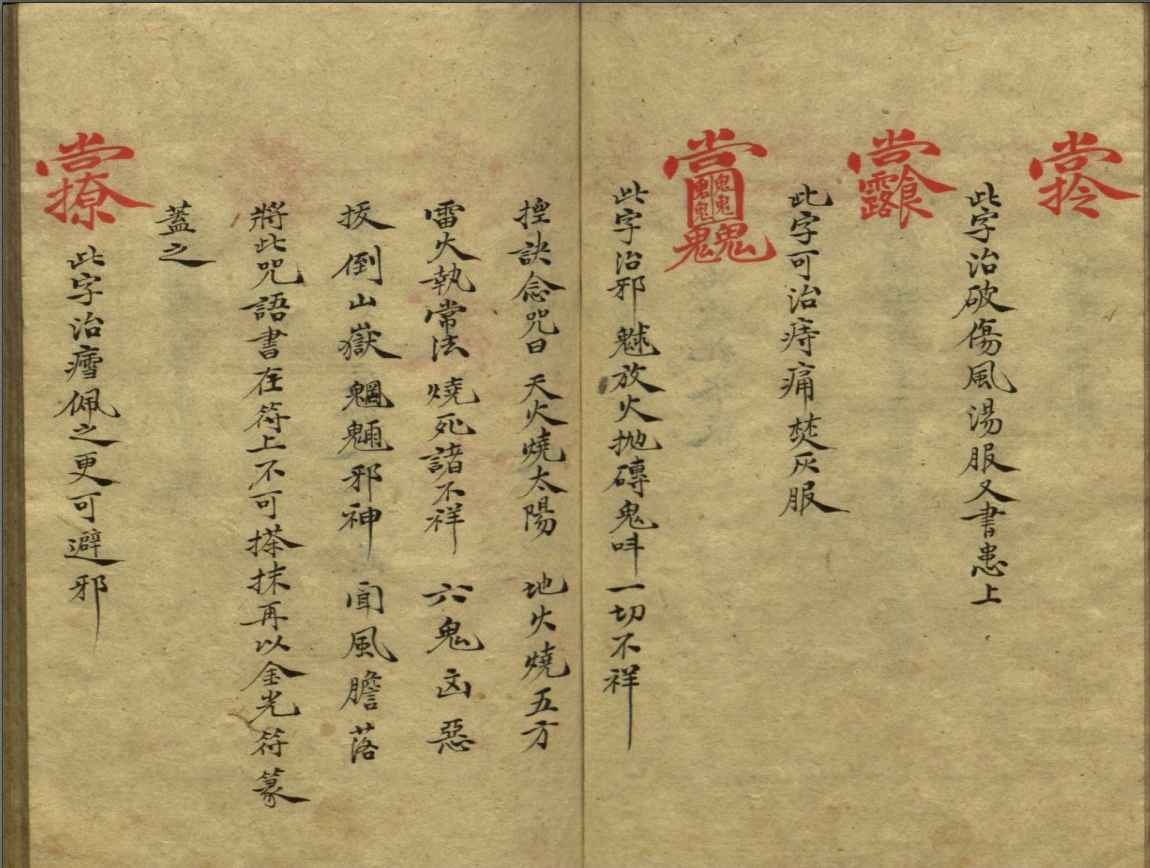 此字治破傷風湯服又書患上
此字可治痔痛焚灰服
此字治邪魅放火抛磚鬼呌一切不祥
揑訣念咒曰 天火燒太陽 地火燒五方
雷火執常法 燒死諸不祥 六鬼凶惡
扳倒山嶽魍魎邪神 聞風膽落
將此咒語書在符上不可搽抹再以金光符篆
蓋之
此字治瘧佩之更可避邪